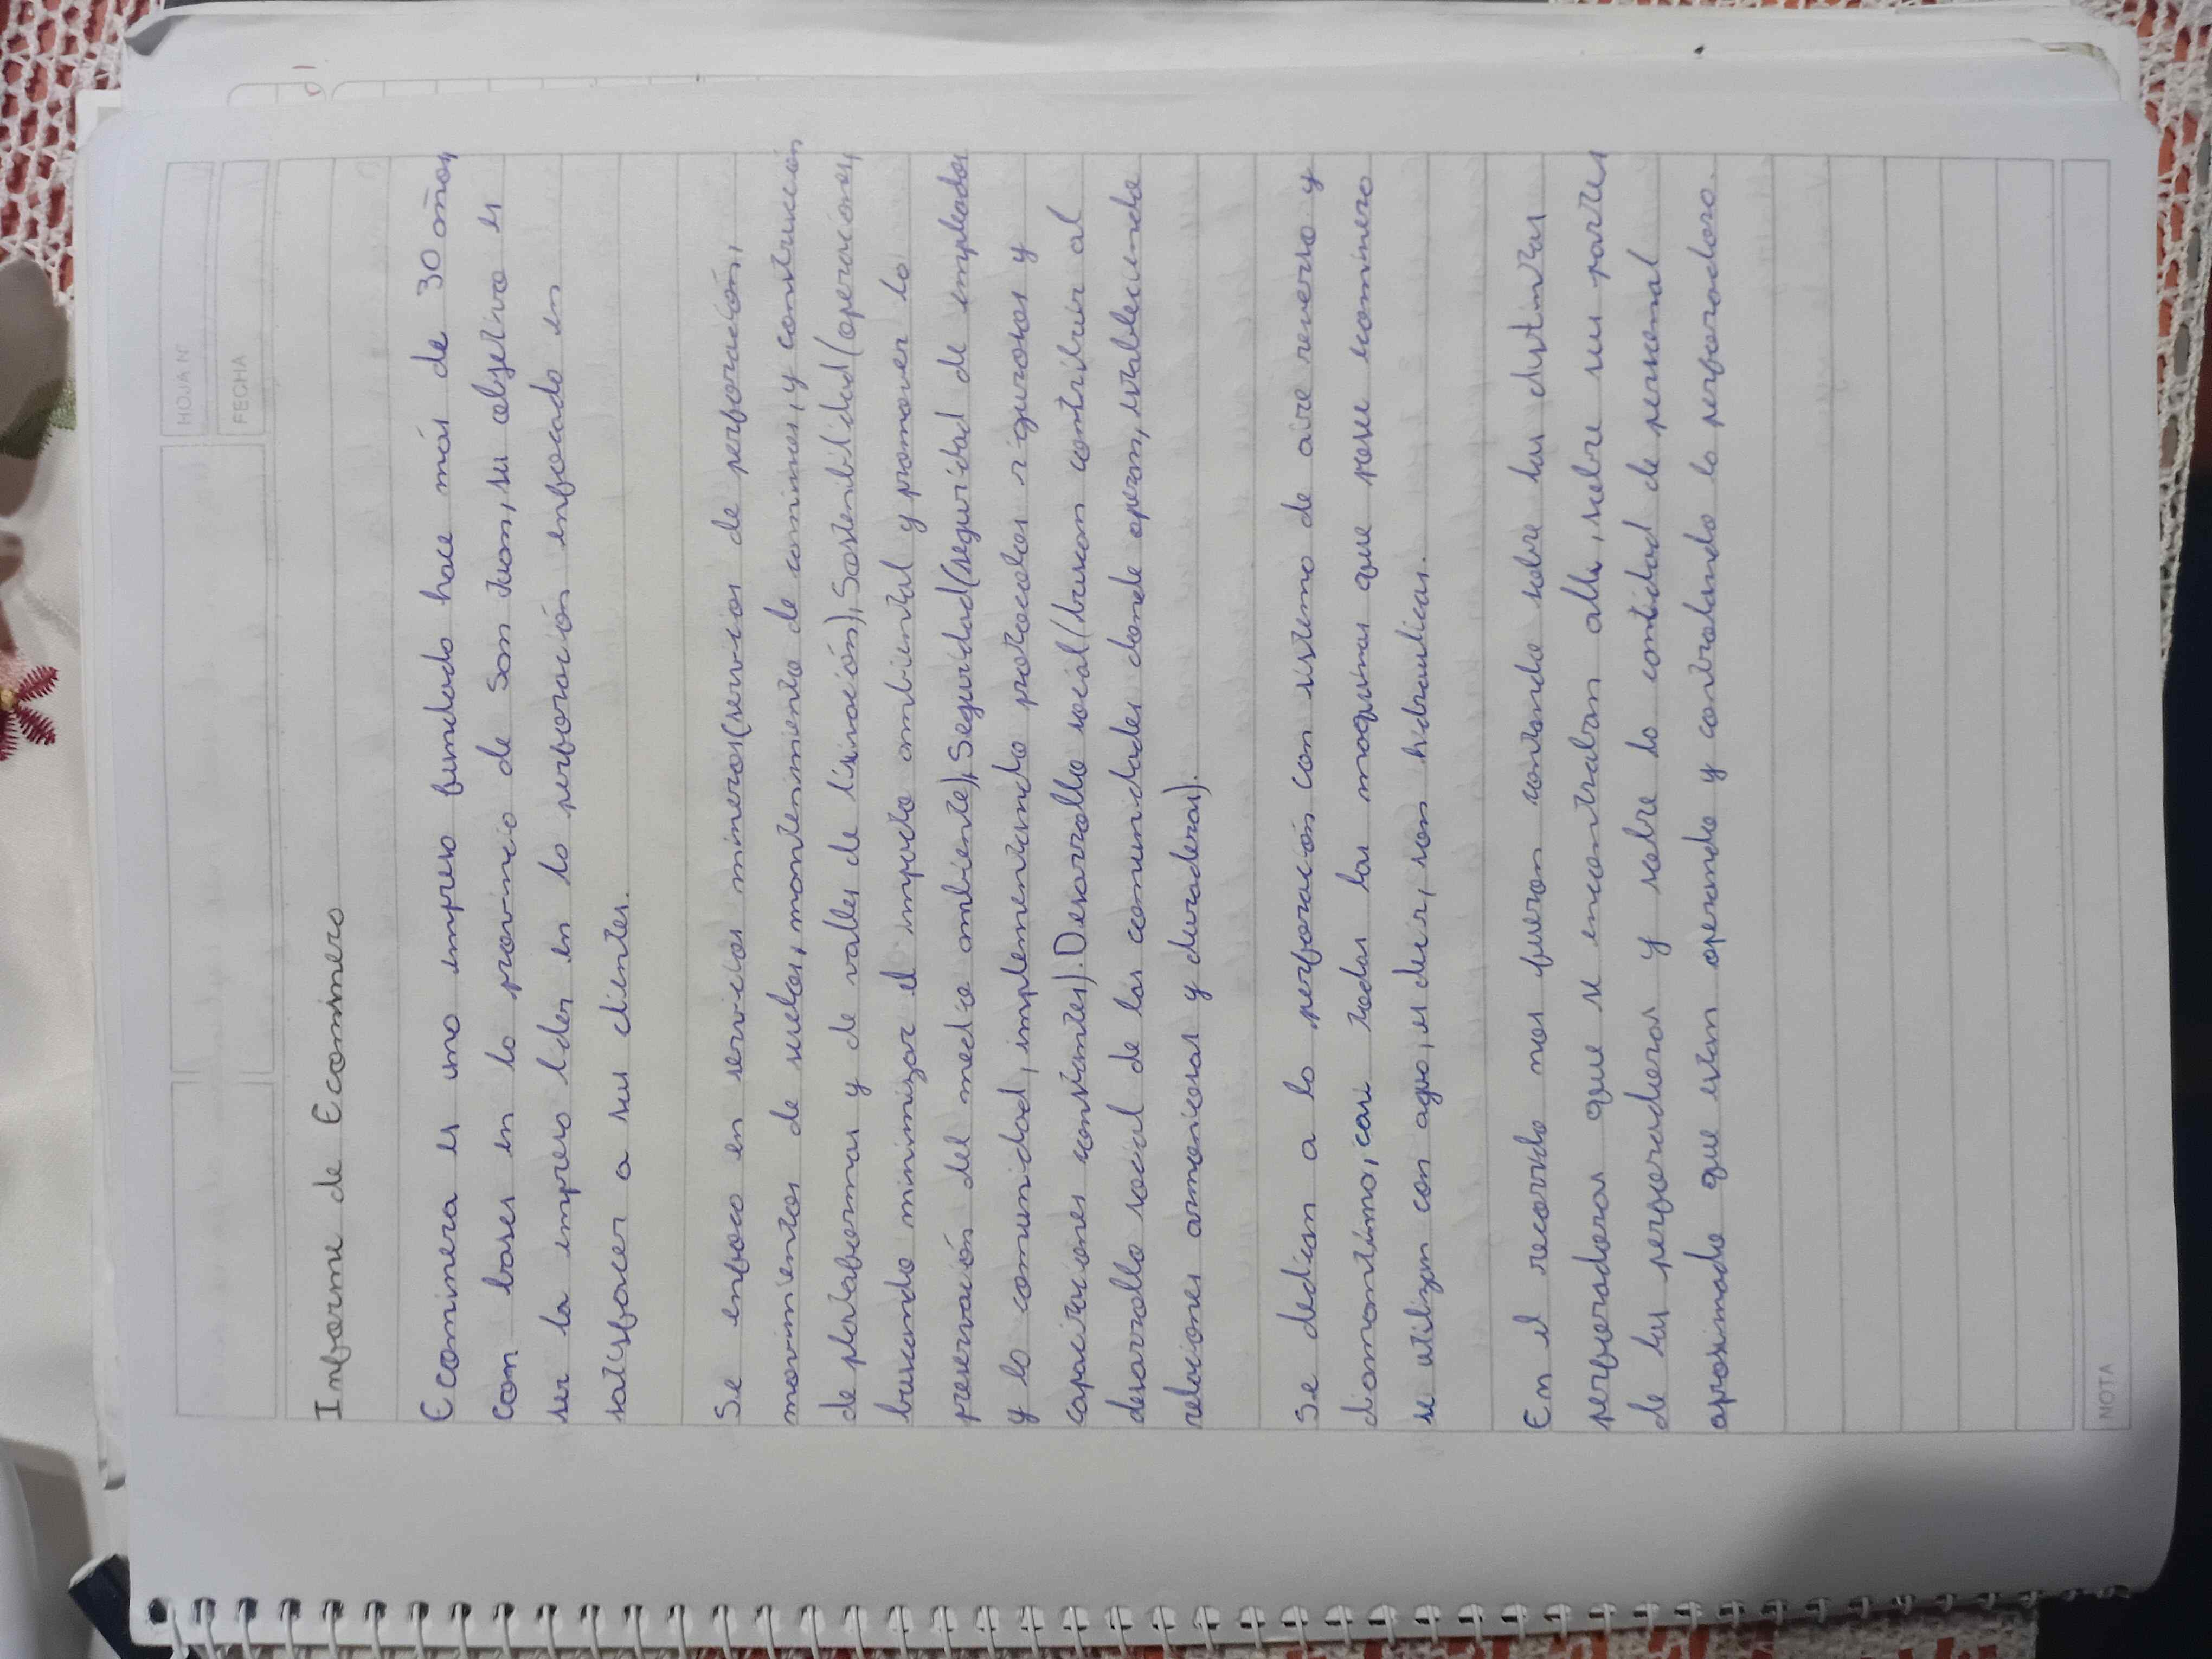 HOJA N°
FECHA
Informe de Ecominera
Ecominera es una empresa fundada hace más de 30 años,
con bases en la provincia de San Juan, su objetivo es
ser la empresa lider en la perforación enfocado en
satisfacer a sus clientes.
Se enfoca en servicios mineros(servicios de perforación,
movimientos de suelos, mantenimiento de caminos, y construcción
de plataformas y de valles de lixinación), Sostenibilidad(operaciones,
buscando minimizar el impacto ambiental y promover la
preservación del medio ambiente), Seguridad(seguridad de empleados
y la comunidad, implementando protocolos rigurosos y
capacitaciones constantes). Desarrollo social(buscan contribuir al
desarrollo social de las comunidades donde operan, estableciendo
relaciones armoniosas y duraderas).
Se dedican a la perforación con sistema de aire reverso y
diamantina, casi todas las maquinas que posee ecominera
se utilizan con agua, es decir, son hidraulicas.
En el recorrido nos fueron contando sobre las distintas
perforadoras que se encontraban alli, sobre sus partes
de las perforadoras y sobre la cantidad de personal
aproximado que estan operando y controlando la perforadora.
NOTA